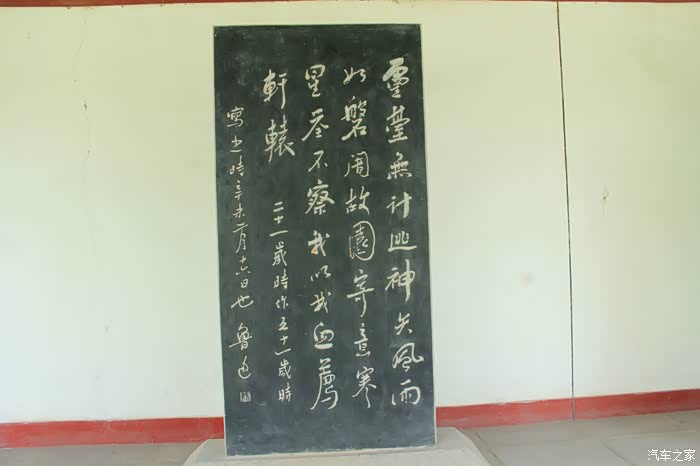 靈臺無計逃神矢風雨
如磐闇故園寄意寒
星荃不察我以我血薦
軒轅
二十一歲時作五十一歲時
寫之時辛未二月十六日也 魯迅
汽车之家